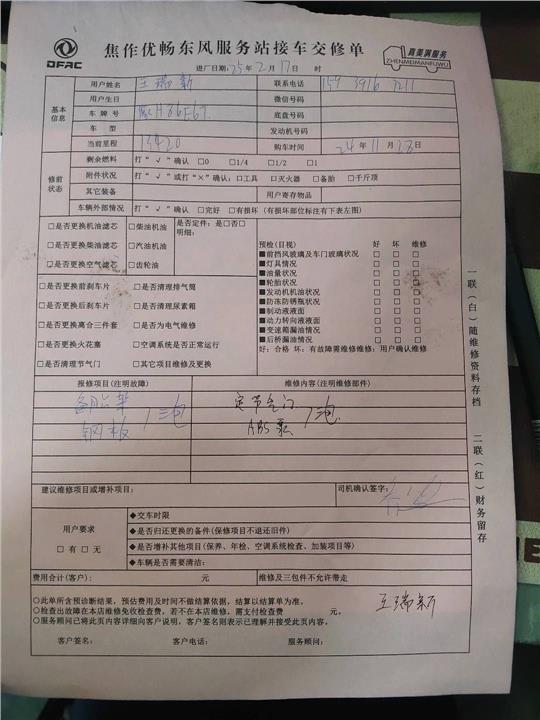 DFAC
焦作优畅东风服务站接车交修单
真美满服务
ZHENMEIMANFUWU
进厂日期:25年2月17日 时
基本信息
用户姓名 王瑞新 联系电话 159 3916 7211
用户生日 微信号码
车牌号 底盘号码
车型 发动机号码
当前里程 13420 购车时间 24年11月28日
修前状态
剩余燃料 打“√”确认 □0 □1/4 □1/2 □1
附件状况 打“√”或打“×”确认:□工具 □灭火器 □备胎 □千斤顶
其它装备 用户寄存物品
车辆外部情况 打“√”确认 □完好 □有损坏 (有损坏部位标注有下表左图)
□是否更换机油滤芯 □柴油机油 是否定件:是□否□
明细:
□是否更换柴油滤芯 □汽油机油
□是否更换空气滤芯 □齿轮油
□是否更换前刹车片 □是否清理排气筒
□是否更换后刹车片 □是否清理尿素箱
□是否更换离合三件套 □是否为电气维修
□是否更换火花塞 □空调系统是否正常运行
□是否清理节气门 □其它项目维修及更换
预检(目视) 好 坏 维修
■前挡风玻璃及车门玻璃状况 □ □ □
■灯具情况 □ □ □
■油量状况 □ □ □
■轮胎状况 □ □ □
■发动机机油油状况 □ □ □
■防冻防锈瓶状况 □ □ □
■制动液液面 □ □ □
■动力转向液液面 □ □ □
■变速箱漏油情况 □ □ □
■后桥漏油情况 □ □ □
好:合格 坏:有故障需维修维修:用户确认维修
报修项目(注明故障) 维修内容(注明维修部件)
备胎架
钢板
定节气门
ABS泵
建议维修项目或增补项目: 司机确认签字:
用户要求
□有□无
◆交车时限
◆是否归还更换的备件(保修项目不退还旧件)
◆是否增补其他项目(保养、年检、空调系统检查、加装项目等)
◆车辆是否需要清洁:
费用合计(客户): 元 维修及三包件不允许带走
○此单所含预诊断结果,预估费用及时间不做结算依据,结算以结算单为准。
○检查出故障在本店维修免收检查费,若不在本店维修,需支付检查费 元。
○服务顾问已将此页内容详细向客户说明,客户签名则表示已理解并接受此页内容。
王瑞新
客户签名: 客户电话: 服务顾问:
一联(白)随维修资料存档 二联(红)财务留存